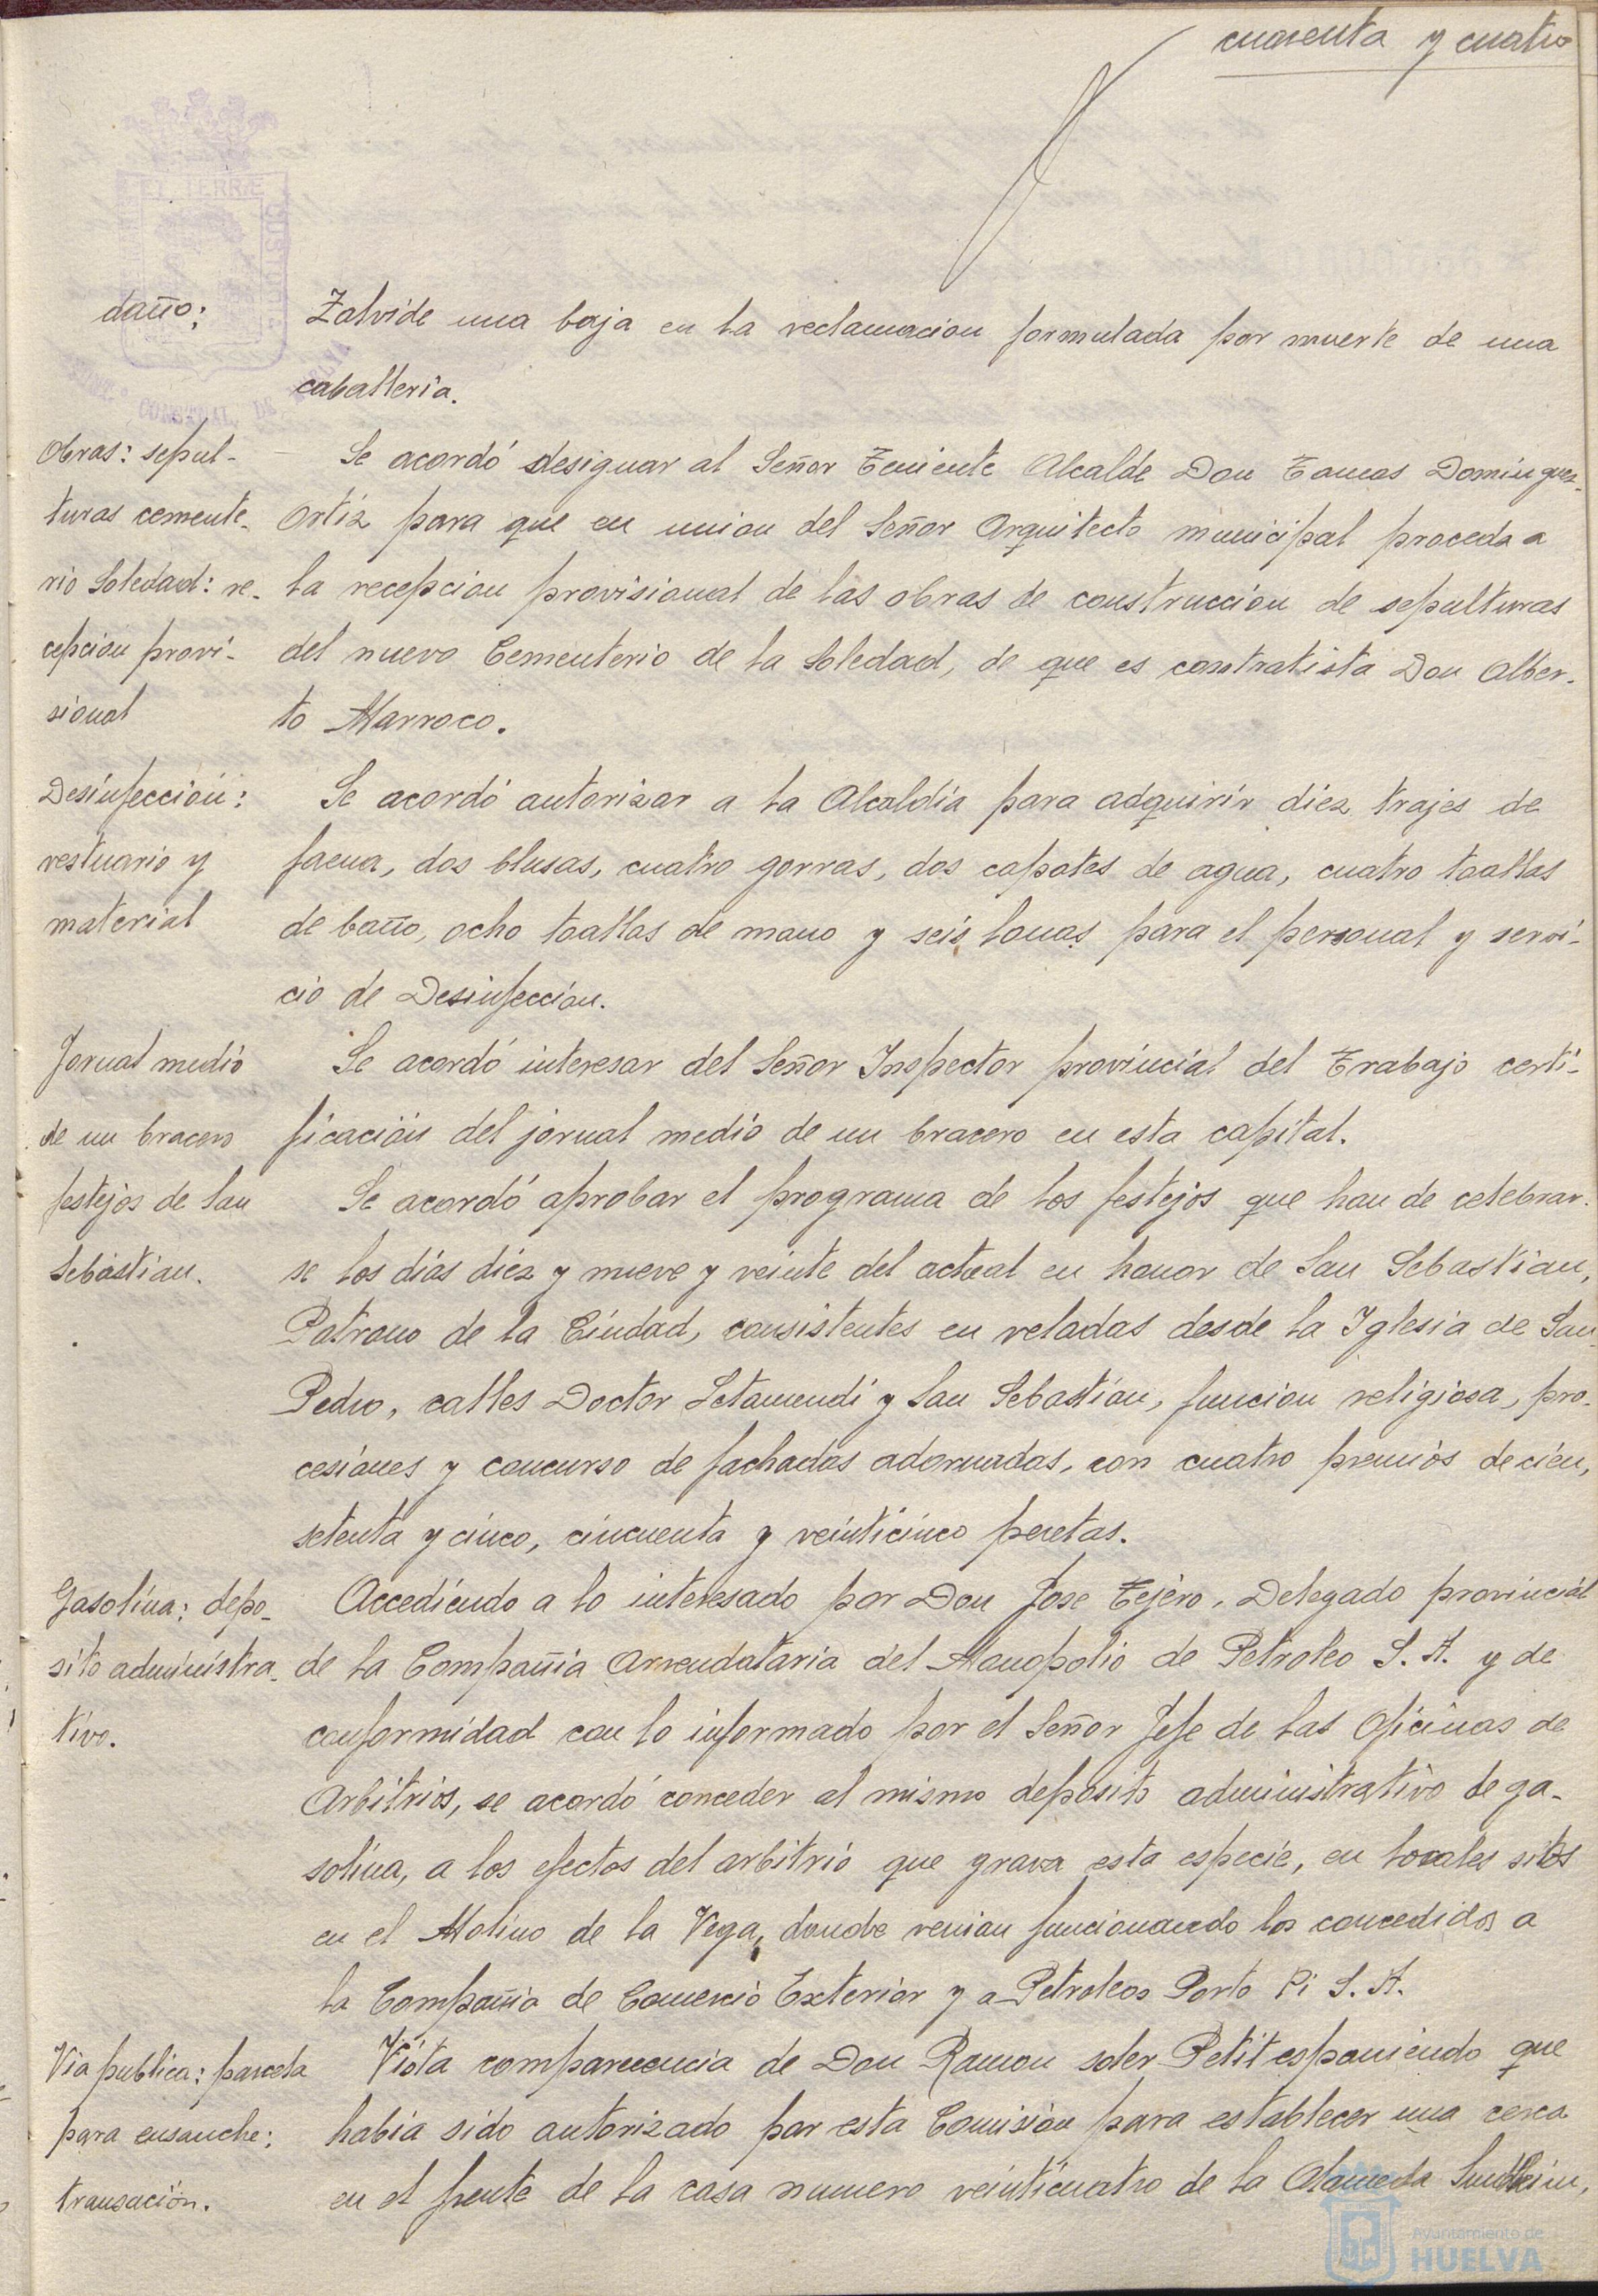 cuarenta y cuatro
daño:
Zalvide una baja en la reclamacion formulada por muerte de una
caballeria.
Obras: sepul-
turas cemente-
rio Soledad: re-
cepcion provi-
sional
Se acordó designar al Señor Teniente Alcalde Don Tomas Dominguez
Ortiz para que en union del Señor Arquitecto municipal proceda a
la recepcion provisional de las obras de construccion de sepulturas
del nuevo Cementerio de la Soledad, de que es contratista Don Alber-
to Marroco.
Desinfección:
vestuario y
material
Se acordó autorizar a la Alcaldía para adquirir diez trajes de
faena, dos blusas, cuatro gorras, dos capotes de agua, cuatro toallas
de baño, ocho toallas de mano y seis lonas para el personal y servi-
cio de Desinfección.
Jornal medio
de un bracero
Se acordó interesar del Señor Inspector provincial del Trabajo certi-
ficación del jornal medio de un bracero en esta capital.
festejos de San
Sebastian.
Se acordó aprobar el programa de los festejos que han de celebrar-
se los días diez y nueve y veinte del actual en honor de San Sebastian,
Patrono de la Ciudad, consistentes en veladas desde la Iglesia de San
Pedro, calles Doctor Letamendi y San Sebastian, funcion religiosa, pro-
cesiones y concurso de fachadas adornadas, con cuatro premios de cien,
setenta y cinco, cincuenta y veinticinco pesetas.
Gasolina: depo-
sito administra-
tivo.
Accediendo a lo interesado por Don Jose Tejero, Delegado provincial
de la Compañia Arrendataria del Monopolio de Petroleo S. A. y de
conformidad con lo informado por el Señor Jefe de las Oficinas de
Arbitrios, se acordó conceder al mismo deposito administrativo de ga-
solina, a los efectos del arbitrio que grava esta especie, en locales sitos
en el Molino de la Vega, donde venian funcionando los concedidos a
la Compañia de Comercio Exterior y a Petroleos Porto Pi S. A.
Via publica: parcela
para ensanche:
transación.
Vista comparecencia de Don Ramon soler Petit esponiendo que
habia sido autorizado por esta Comisión para establecer una cerca
en el frente de la casa numero veinticuatro de la Alameda Sundheim,
Ayuntamiento de
HUELVA